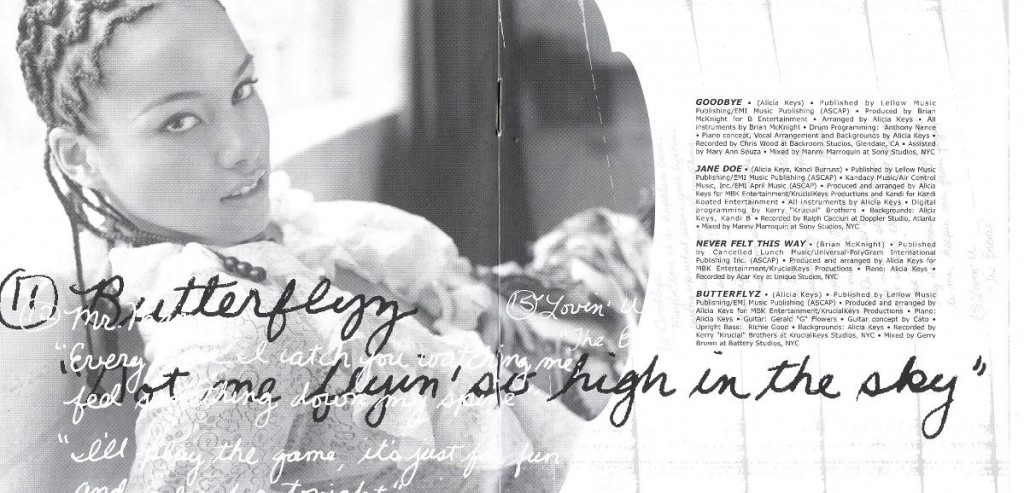 GOODBYE • (Alicia Keys) • Published by Lellow Music
Publishing/EMI Music Publishing (ASCAP) • Produced by Brian
McKnight for B Entertainment • Arranged by Alicia Keys • All
instruments by Brian McKnight • Drum Programming: Anthony Nance
• Piano concept, Vocal Arrangement and Backgrounds by Alicia Keys •
Recorded by Chris Wood at Backroom Studios, Glendale, CA • Assisted
by Mary Ann Souza • Mixed by Manny Marroquin at Sony Studios, NYC
JANE DOE • (Alicia Keys, Kandi Burruss) • Published by Lellow Music
Publishing/EMI Music Publishing (ASCAP) • Kandacy Music/Air Control
Music, Inc./EMI April Music (ASCAP) • Produced and arranged by Alicia
Keys for MBK Entertainment/KrucialKeys Productions and Kandi for Kandi
Koated Entertainment • All instruments by Alicia Keys • Digital
programming by Kerry "Krucial" Brothers • Backgrounds: Alicia
Keys, Kandi B • Recorded by Ralph Cacciuri at Doppler Studio, Atlanta
• Mixed by Manny Marroquin at Sony Studios, NYC
NEVER FELT THIS WAY • (Brian McKnight) • Published
by Cancelled Lunch Music/Universal-PolyGram International
Publishing Inc. (ASCAP) • Produced and arranged by Alicia Keys for
MBK Entertainment/KrucialKeys Productions • Piano: Alicia Keys •
Recorded by Acar Key at Unique Studios, NYC
BUTTERFLYZ • (Alicia Keys) • Published by Lellow Music
Publishing/EMI Music Publishing (ASCAP) • Produced and arranged by
Alicia Keys for MBK Entertainment/KrucialKeys Productions • Piano:
Alicia Keys • Guitar: Gerald "G" Flowers • Guitar concept by Cato •
Upright Bass: Richie Good • Backgrounds: Alicia Keys • Recorded by
Kerry "Krucial" Brothers at KrucialKeys Studios, NYC • Mixed by Gerry
Brown at Battery Studios, NYC
11 Butterflyz
"Got me flyin' so high in the sky"
Mr.
15 Lovin' U
The
"Every I catch you watching me
feel something down my spine"
"I'll play the game, it's just for fun
and tonight"